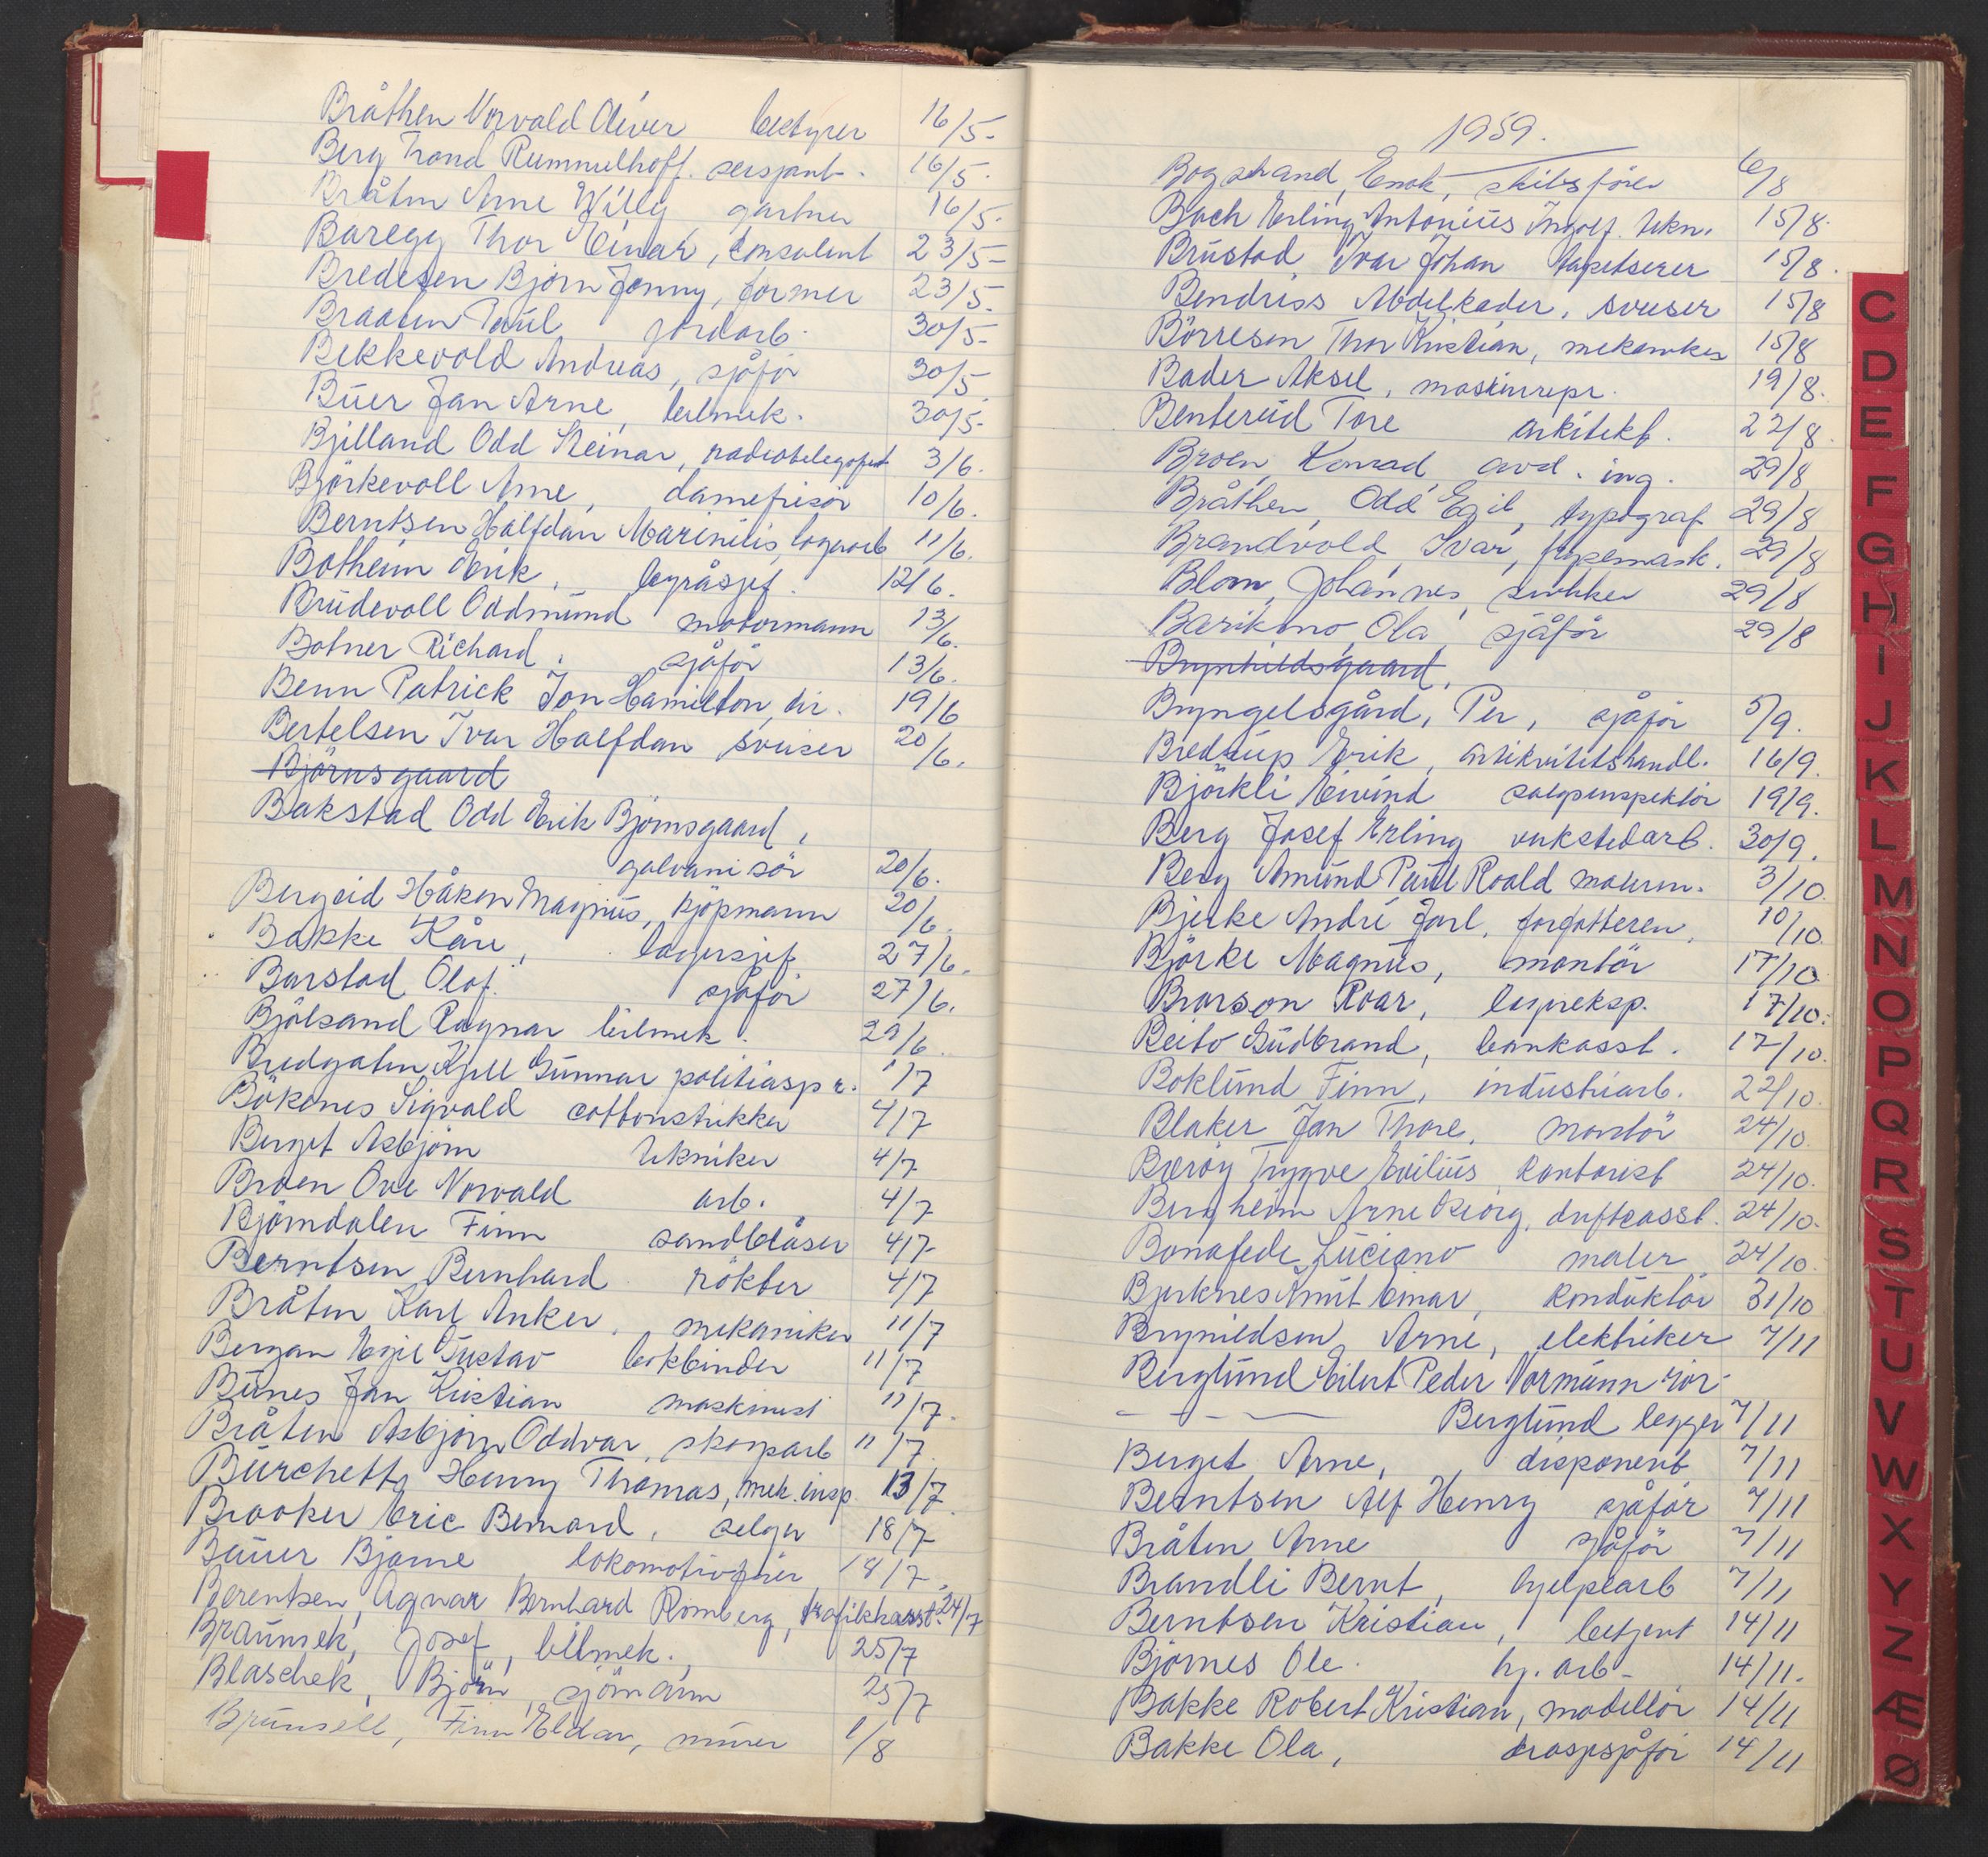 Bråthen Norvald Oliver bestyrer 16/5-
Berg Trond Rummelhoff. sersjant. 16/5.
Bråten Arne Willy gartner 16/5.
Baregg Thor Einar, konsulent 23/5-
Bredesen Bjørn Jonny, former 23/5.
Braaten Paul jordarb. 30/5-
Bekkevold Andreas, sjåför 30/5
Buer Jan Arne, bilmek. 30/5-
Bjelland Odd Steinar, radiotelegrafist 3/6.
Björkevoll Arne, damefrisör 10/6.
Berntsen Halfdan Marinius, lagerarb 11/6.
Botheim Erik, byråsjef. 12/6.
Brudevoll Oddmund motormann 13/6.
Botner Richard, sjåför 13/6.
Benn Patrick Ion Hamilton, dir. 19/6
Bertelsen Ivar Halfdan sveiser 20/6.
Björnsgaard
Bakstad Odd Erik Björnsgaard,
galvanisör 20/6.
Bergeid Håkon Magnus, kjöpmann 20/6.
Bakke Kåre, lagersjef 27/6.
Barstad Olaf. sjåför 27/6.
Bjölsand Ragnar bilmek. 29/6.
Bredgaten Kjell Gunnar politiaspr. 1/7
Bökenes Sigvald cottonstrikker 4/7
Berget Asbjörn tekniker 4/7
Broen Ove Norvald arb. 4/7
Björndalen Finn sandblåser 4/7
Berntsen Bernhard rökter 4/7
Bråten Karl Anker, mekaniker 11/7
Bergan Egil Gustav bokbinder 11/7
Bunes Jan Kristian maskinist 11/7.
Bråten Asbjörn Oddvar, skogsarb 11/7.
Burchett, Henry Thomas, mek. insp. 13/7.
Brooker Eric Bernard, selger 18/7
Bauer Bjarne lokomotivfyrer 18/7
Berentsen, Agnar Bernhard Romberg, trafikkasst. 24/7
Braunsek, Josef, bilmek. 25/7
Blaschek, Björn, sjömann 25/7
Brunsell, Finn Eldar, murer 1/8
1959.
Bogstrand, Enok, skibsförer 6/8
Bach Erling Antonius Ingolf. tekn. 15/8.
Brustad, Ivar Johan tapetserer 15/8.
Bendriss Abdelkader, sveiser 15/8
Börresen Thor Kristian, mekaniker 15/8
Bader Aksel, maskinrepr. 19/8.
Benterud Tore arkitekt. 22/8.
Broen, Konrad avd. ing. 29/8
Bråthen, Odd Egil, typograf 29/8
Brandvold, Ivar, 29/8
Blom, Johannes, snekker 29/8
Barikmo, Ola, sjåför 29/8
Brynhildsgaard,
Bryngelsgård, Per, sjåför 5/9.
Bredrup Erik, antikvitetshandl. 16/9.
Björkli Eivind salgsinspektör 19/9.
Berg Josef Erling verkstedarb. 30/9.
Berg Amund Paul Roald maskin. 3/10.
Bjerke André Jarl, forfatteren, 10/10.
Björke Magnus, montör 17/10
Brorson Roar, lagereksp. 17/10.
Beito Gudbrand, bankasst. 17/10.
Boklund Finn, industriarb. 22/10.
Blaker Jan Thore, montör 24/10.
Bæröy Trygve Emilius, kontorist 24/10.
Bergheim Arne Georg, driftsasst. 24/10.
Bonafede Luciano maler 24/10.
Bjerknes Knut Einar, konduktör 31/10
Brynildsen, Arne, elektriker 7/11
Berglund Eilert Peder Normann rör-
- - — Berglund legger 7/11
Berget Arne, disponent 7/11
Berntsen Alf Henry sjåför 7/11
Bråten Arne sjåför 7/11
Brandli Bernt, hjelpearb 7/11
Berntsen Kristian, betjent 14/11
Björnes Ole. hj. arb- 14/11.
Bakke Robert Kristian, modellör 14/11
Bakke Ola, drosjesjåför 14/11
C
D
E
F
G
H
I
J
K
L
M
N
O
P
Q
R
S
T
U
V
W
X
Y
Z
Æ
Ø